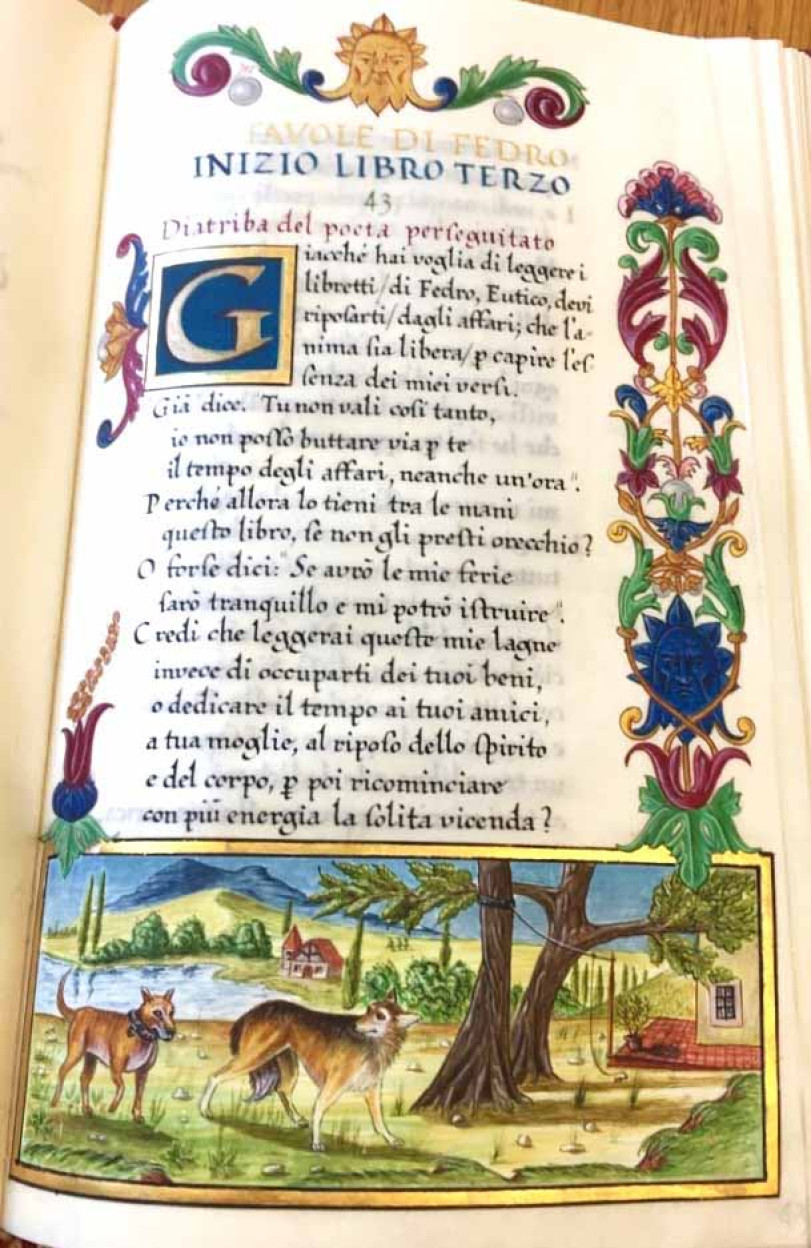 FAVOLE DI FEDRO
INIZIO LIBRO TERZO
43
Diatriba del poeta perſeguitato
Giacché hai voglia di leggere i
libretti/di Fedro, Eutico, devi
ripoſarti/dagli affari; che l'a-
nima ſia libera/ꝑ capire l'eſ-
ſenza dei miei verſi.
Già dice. Tu non vali coſì tanto,
io non poſſo buttare via ꝑ te
il tempo degli affari, neanche un'ora".
Perché allora lo tieni tra le mani
queſto libro, ſe non gli preſti orecchio?
O forſe dici: "Se avrò le mie ferie
ſarò tranquillo e mi potrò iſtruire".
Credi che leggerai queſte mie lagne
invece di occuparti dei tuoi beni,
o dedicare il tempo ai tuoi amici,
a tua moglie, al ripoſo dello ſpirito
e del corpo, ꝑ poi ricominciare
con più energia la ſolita vicenda?